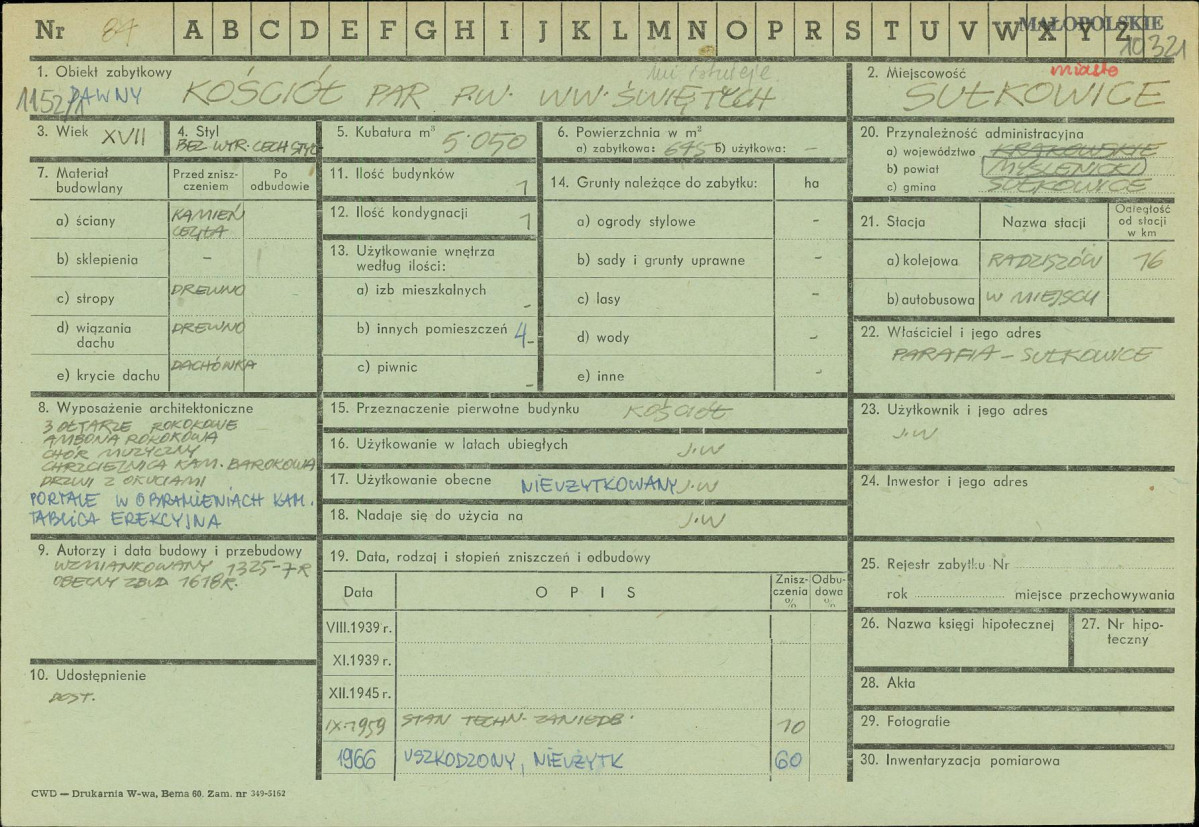 Nr 87 A B C D E F G H I J K L M N O P R S T U V W X Y Z
MAŁOPOLSKIE
10321
1. Obiekt zabytkowy
nie istnieje
1152/1 DAWNY KOŚCIÓŁ PAR P.W. WW. ŚWIĘTYCH
2. Miejscowość miasto
SUŁKOWICE
3. Wiek XVII
4. Styl
BEZ WYR. CECH STYL
5. Kubatura m³
5.050
6. Powierzchnia w m²
a) zabytkowa: 675 b) użytkowa: –
7. Materiał budowlany
Przed zniszczeniem
Po odbudowie
a) ściany KAMIEŃ CEGŁA
b) sklepienia –
c) stropy DREWNO
d) wiązania dachu DREWNO
e) krycie dachu DACHÓWKA
8. Wyposażenie architektoniczne
3 OŁTARZE ROKOKOWE
AMBONA ROKOKOWA
CHÓR MUZYCZNY
CHRZCIELNICA KAM. BAROKOWA
DRZWI Z OKUCIAMI
PORTALE W OBRAMIENIACH KAM.
TABLICA EREKCYJNA
9. Autorzy i data budowy i przebudowy
WZMIANKOWANY 1325-7 R
OBECNY ZBUD 1618 R.
10. Udostępnienie
DOST.
11. Ilość budynków 1
12. Ilość kondygnacji 1
13. Użytkowanie wnętrza
według ilości:
a) izb mieszkalnych –
b) innych pomieszczeń 4 –
c) piwnic –
14. Grunty należące do zabytku: ha
a) ogrody stylowe –
b) sady i grunty uprawne –
c) lasy –
d) wody –
e) inne –
15. Przeznaczenie pierwotne budynku KOŚCIÓŁ
16. Użytkowanie w latach ubiegłych J.W
17. Użytkowanie obecne NIEUŻYTKOWANY J.W
18. Nadaje się do użycia na J.W
19. Data, rodzaj i stopień zniszczeń i odbudowy
Data
OPIS
Zniszczenia %
Odbudowa %
VIII.1939 r.
XI.1939 r.
XII.1945 r.
IX.1959 STAN TECHN. ZANIEDB. 10
1966 USZKODZONY, NIEUŻYTK 60
20. Przynależność administracyjna
a) województwo KRAKOWSKIE
b) powiat MYŚLENICKI
c) gmina SUŁKOWICE
21. Stacja
Nazwa stacji
Odległość od stacji w km
a) kolejowa RADZISZÓW 16
b) autobusowa W MIEJSCU
22. Właściciel i jego adres
PARAFIA – SUŁKOWICE
23. Użytkownik i jego adres
J.W
24. Inwestor i jego adres
25. Rejestr zabytku Nr
rok miejsce przechowywania
26. Nazwa księgi hipotecznej
27. Nr hipoteczny
28. Akta
29. Fotografie
30. Inwentaryzacja pomiarowa
CWD — Drukarnia W-wa, Bema 60. Zam. nr 349-5162